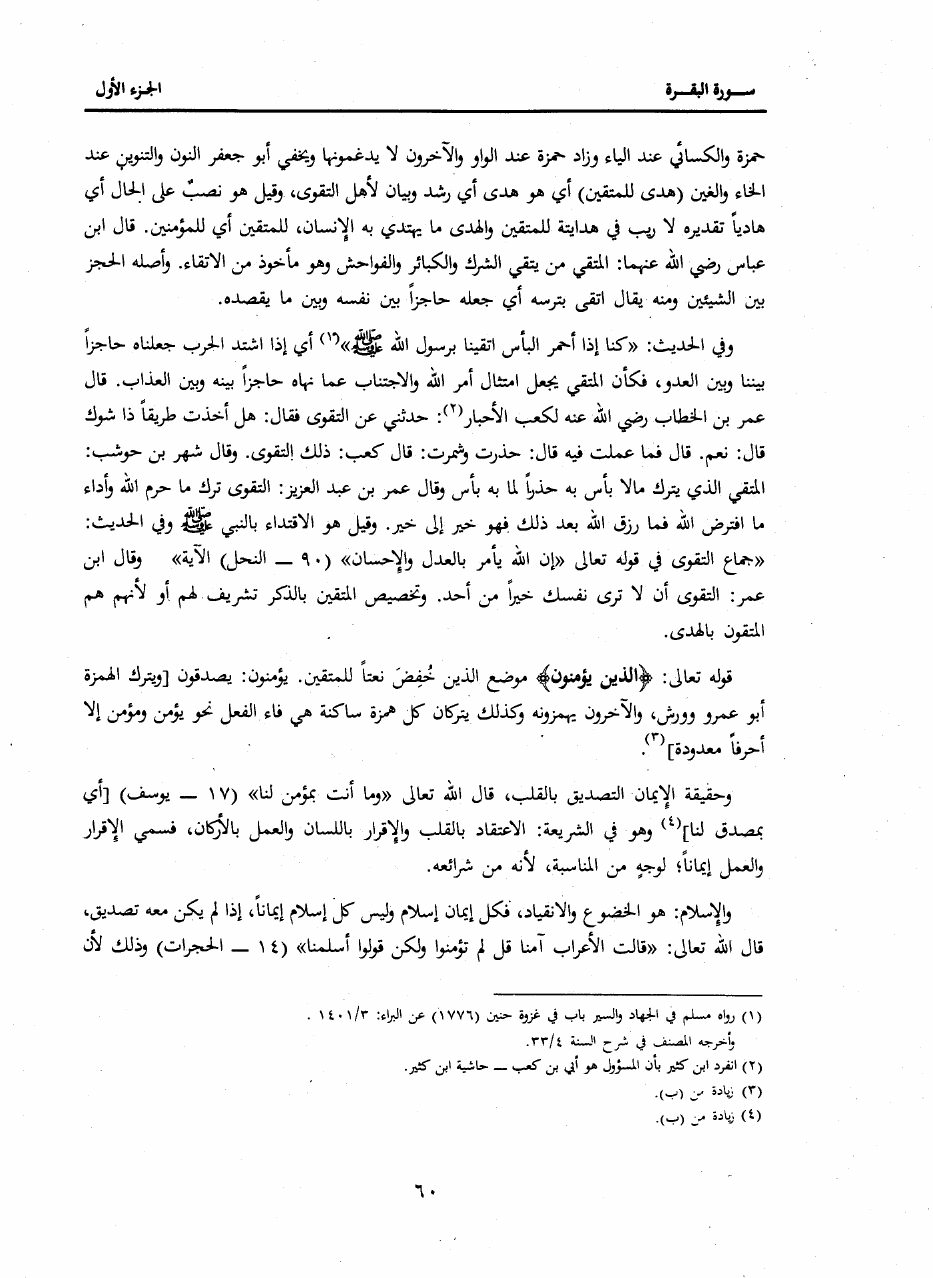 سـورة البقـرة
الجزء الأول
حمزة والكسائي عند الياء وزاد حمزة عند الواو والآخرون لا يدغمونها ويخفي أبو جعفر النون والتنوين عند
الخاء والغين (هدى للمتقين) أي هو هدى أي رشد وبيان لأهل التقوى، وقيل هو نصبٌ على الحال أي
هادياً تقديره لا ريب في هدايتة للمتقين والهدى ما يهتدي به الإنسان، للمتقين أي للمؤمنين. قال ابن
عباس رضي الله عنهما: المتقي من يتقي الشرك والكبائر والفواحش وهو مأخوذ من الاتقاء. وأصله الحجز
بين الشيئين ومنه يقال اتقى بترسه أي جعله حاجزاً بين نفسه وبين ما يقصده.
وفي الحديث: «كنا إذا أحمر البأس اتقينا برسول الله ﷺ»(١) أي إذا اشتد الحرب جعلناه حاجزاً
بيننا وبين العدو، فكأن المتقي يجعل امتثال أمر الله والاجتناب عما نهاه حاجزاً بينه وبين العذاب. قال
عمر بن الخطاب رضي الله عنه لكعب الأحبار(٢): حدثني عن التقوى فقال: هل أخذت طريقاً ذا شوك
قال: نعم. قال فما عملت فيه قال: حذرت وشمرت: قال كعب: ذلك التقوى. وقال شهر بن حوشب:
المتقي الذي يترك مالا بأس به حذراً لما به بأس وقال عمر بن عبد العزيز: التقوى ترك ما حرم الله وأداء
ما افترض الله فما رزق الله بعد ذلك فهو خير إلى خير. وقيل هو الاقتداء بالنبي ﷺ وفي الحديث:
«جماع التقوى في قوله تعالى «إن الله يأمر بالعدل والإحسان» (٩٠ ــ النحل) الآية» وقال ابن
عمر: التقوى أن لا ترى نفسك خيراً من أحد. وتخصيص المتقين بالذكر تشريف لهم أو لأنهم هم
المتقون بالهدى.
قوله تعالى: ﴿الذين يؤمنون﴾ موضع الذين خُفِضَ نعتاً للمتقين. يؤمنون: يصدقون [ويترك الهمزة
أبو عمرو وورش، والآخرون يهمزونه وكذلك يتركان كل همزة ساكنة هي فاء الفعل نحو يؤمن ومؤمن إلا
أحرفاً معدودة](٣).
وحقيقة الإيمان التصديق بالقلب، قال الله تعالى «وما أنت بمؤمن لنا» (١٧ ــ يوسف) [أي
بمصدق لنا](٤) وهو في الشريعة: الاعتقاد بالقلب والإقرار باللسان والعمل بالأركان، فسمي الإقرار
والعمل إيماناً؛ لوجهٍ من المناسبة، لأنه من شرائعه.
والإسلام: هو الخضوع والانقياد، فكل إيمان إسلام وليس كل إسلام إيماناً، إذا لم يكن معه تصديق،
قال الله تعالى: «قالت الأعراب آمنا قل لم تؤمنوا ولكن قولوا أسلمنا» (١٤ ــ الحجرات) وذلك لأن
(١) رواه مسلم في الجهاد والسير باب في غزوة حنين (١٧٧٦) عن البراء: ١٤٠١/٣ .
وأخرجه المصنف في شرح السنة ٣٣/٤.
(٢) انفرد ابن كثير بأن المسؤول هو أبي بن كعب ــ حاشية ابن كثير.
(٣) زيادة من (ب).
(٤) زيادة من (ب).
٦٠